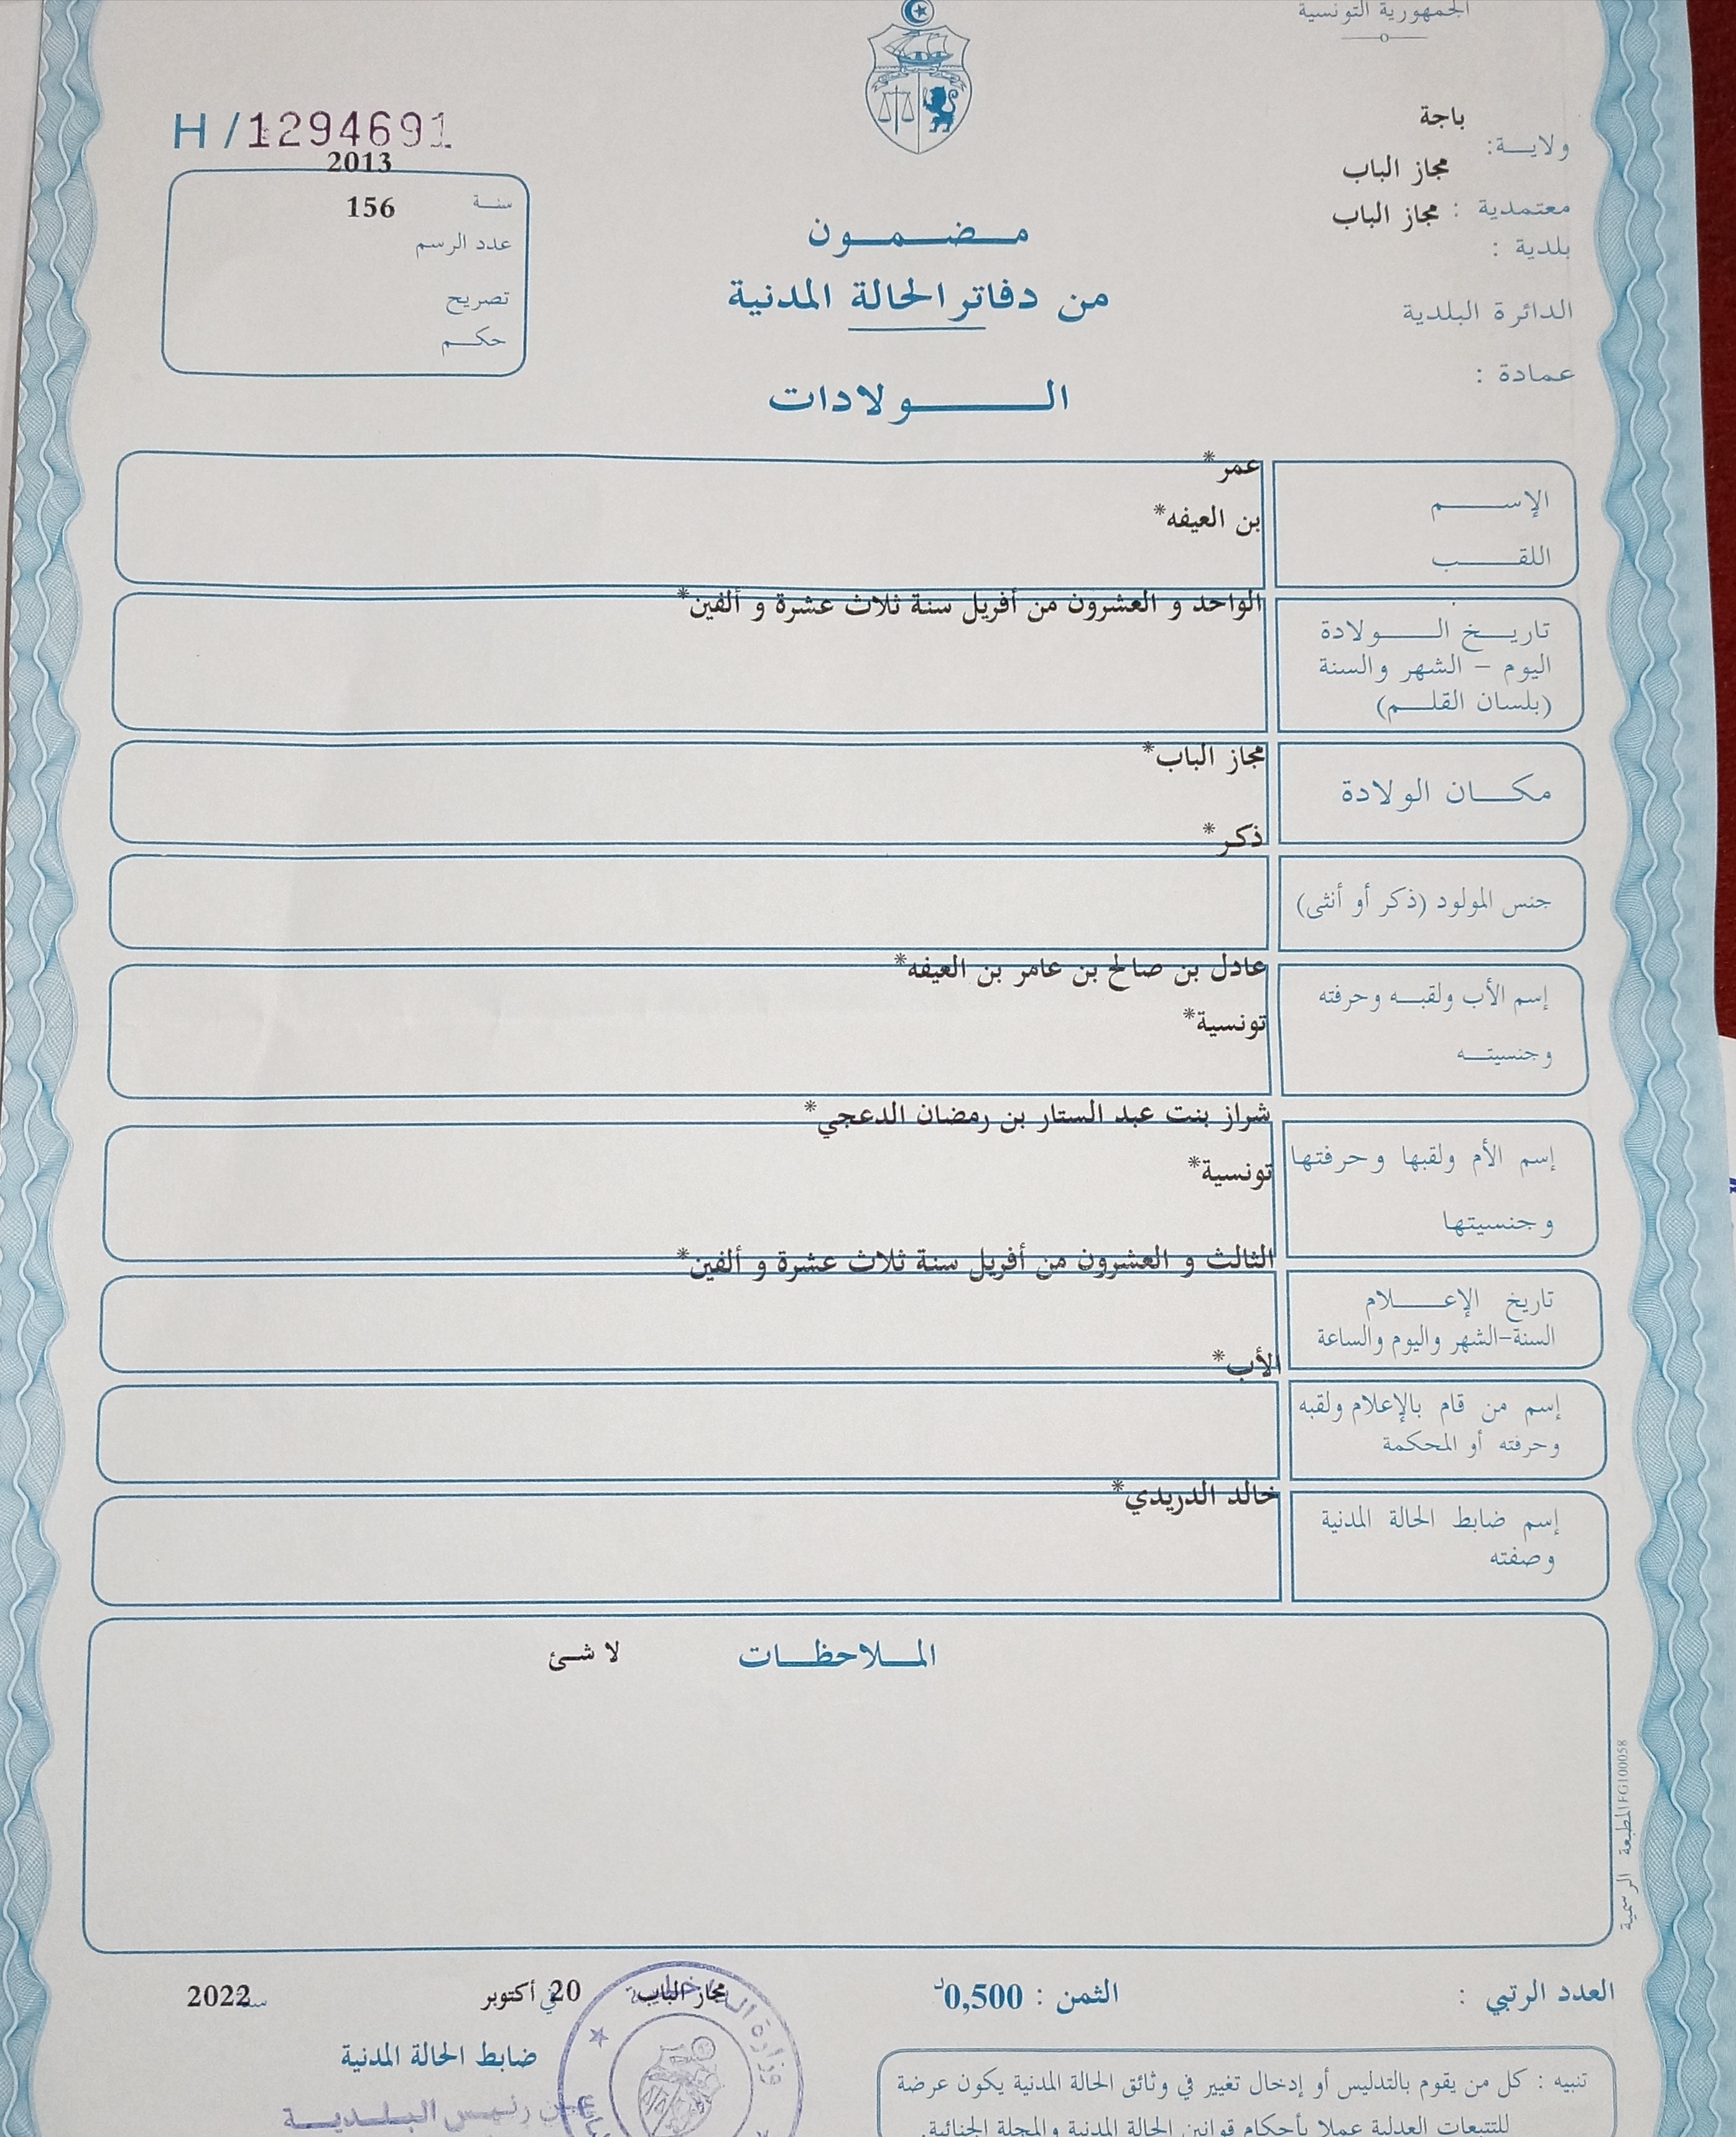 الجمهورية التونسية
ولاية: باجة
معتمدية : مجاز الباب
بلدية : مجاز الباب
الدائرة البلدية
عمادة :
H/1294691
سنة 2013
عدد الرسم 156
تصريح
حكم
مضمون
من دفاتر الحالة المدنية
الولادات
الإسم عمر*
اللقب بن العيفه*
تاريخ الولادة الواحد و العشرون من أفريل سنة ثلاث عشرة و ألفين*
اليوم - الشهر والسنة
(بلسان القلم)
مكان الولادة مجاز الباب*
جنس المولود (ذكر أو أنثى) ذكر*
إسم الأب ولقبه وحرفته عادل بن صالح بن عامر بن العيفه*
وجنسيته تونسية*
إسم الأم ولقبها وحرفتها شراز بنت عبد الستار بن رمضان الدعجي*
وجنسيتها تونسية*
تاريخ الإعلام الثالث و العشرون من أفريل سنة ثلاث عشرة و ألفين*
السنة-الشهر واليوم والساعة
إسم من قام بالإعلام ولقبه الأب*
وحرفته أو المحكمة
إسم ضابط الحالة المدنية خالد الدريدي*
وصفته
الملاحظات لا شئ
المطبعة الرسمية FG100058
العدد الرتبي :
الثمن : 0,500د
مجاز الباب في 20 أكتوبر سنة 2022
ضابط الحالة المدنية
عن رئيس البلدية
وزارة الداخلية
تنبيه : كل من يقوم بالتدليس أو إدخال تغيير في وثائق الحالة المدنية يكون عرضة
للتتبعات العدلية عملا بأحكام قوانين الحالة المدنية والمجلة الجنائية.